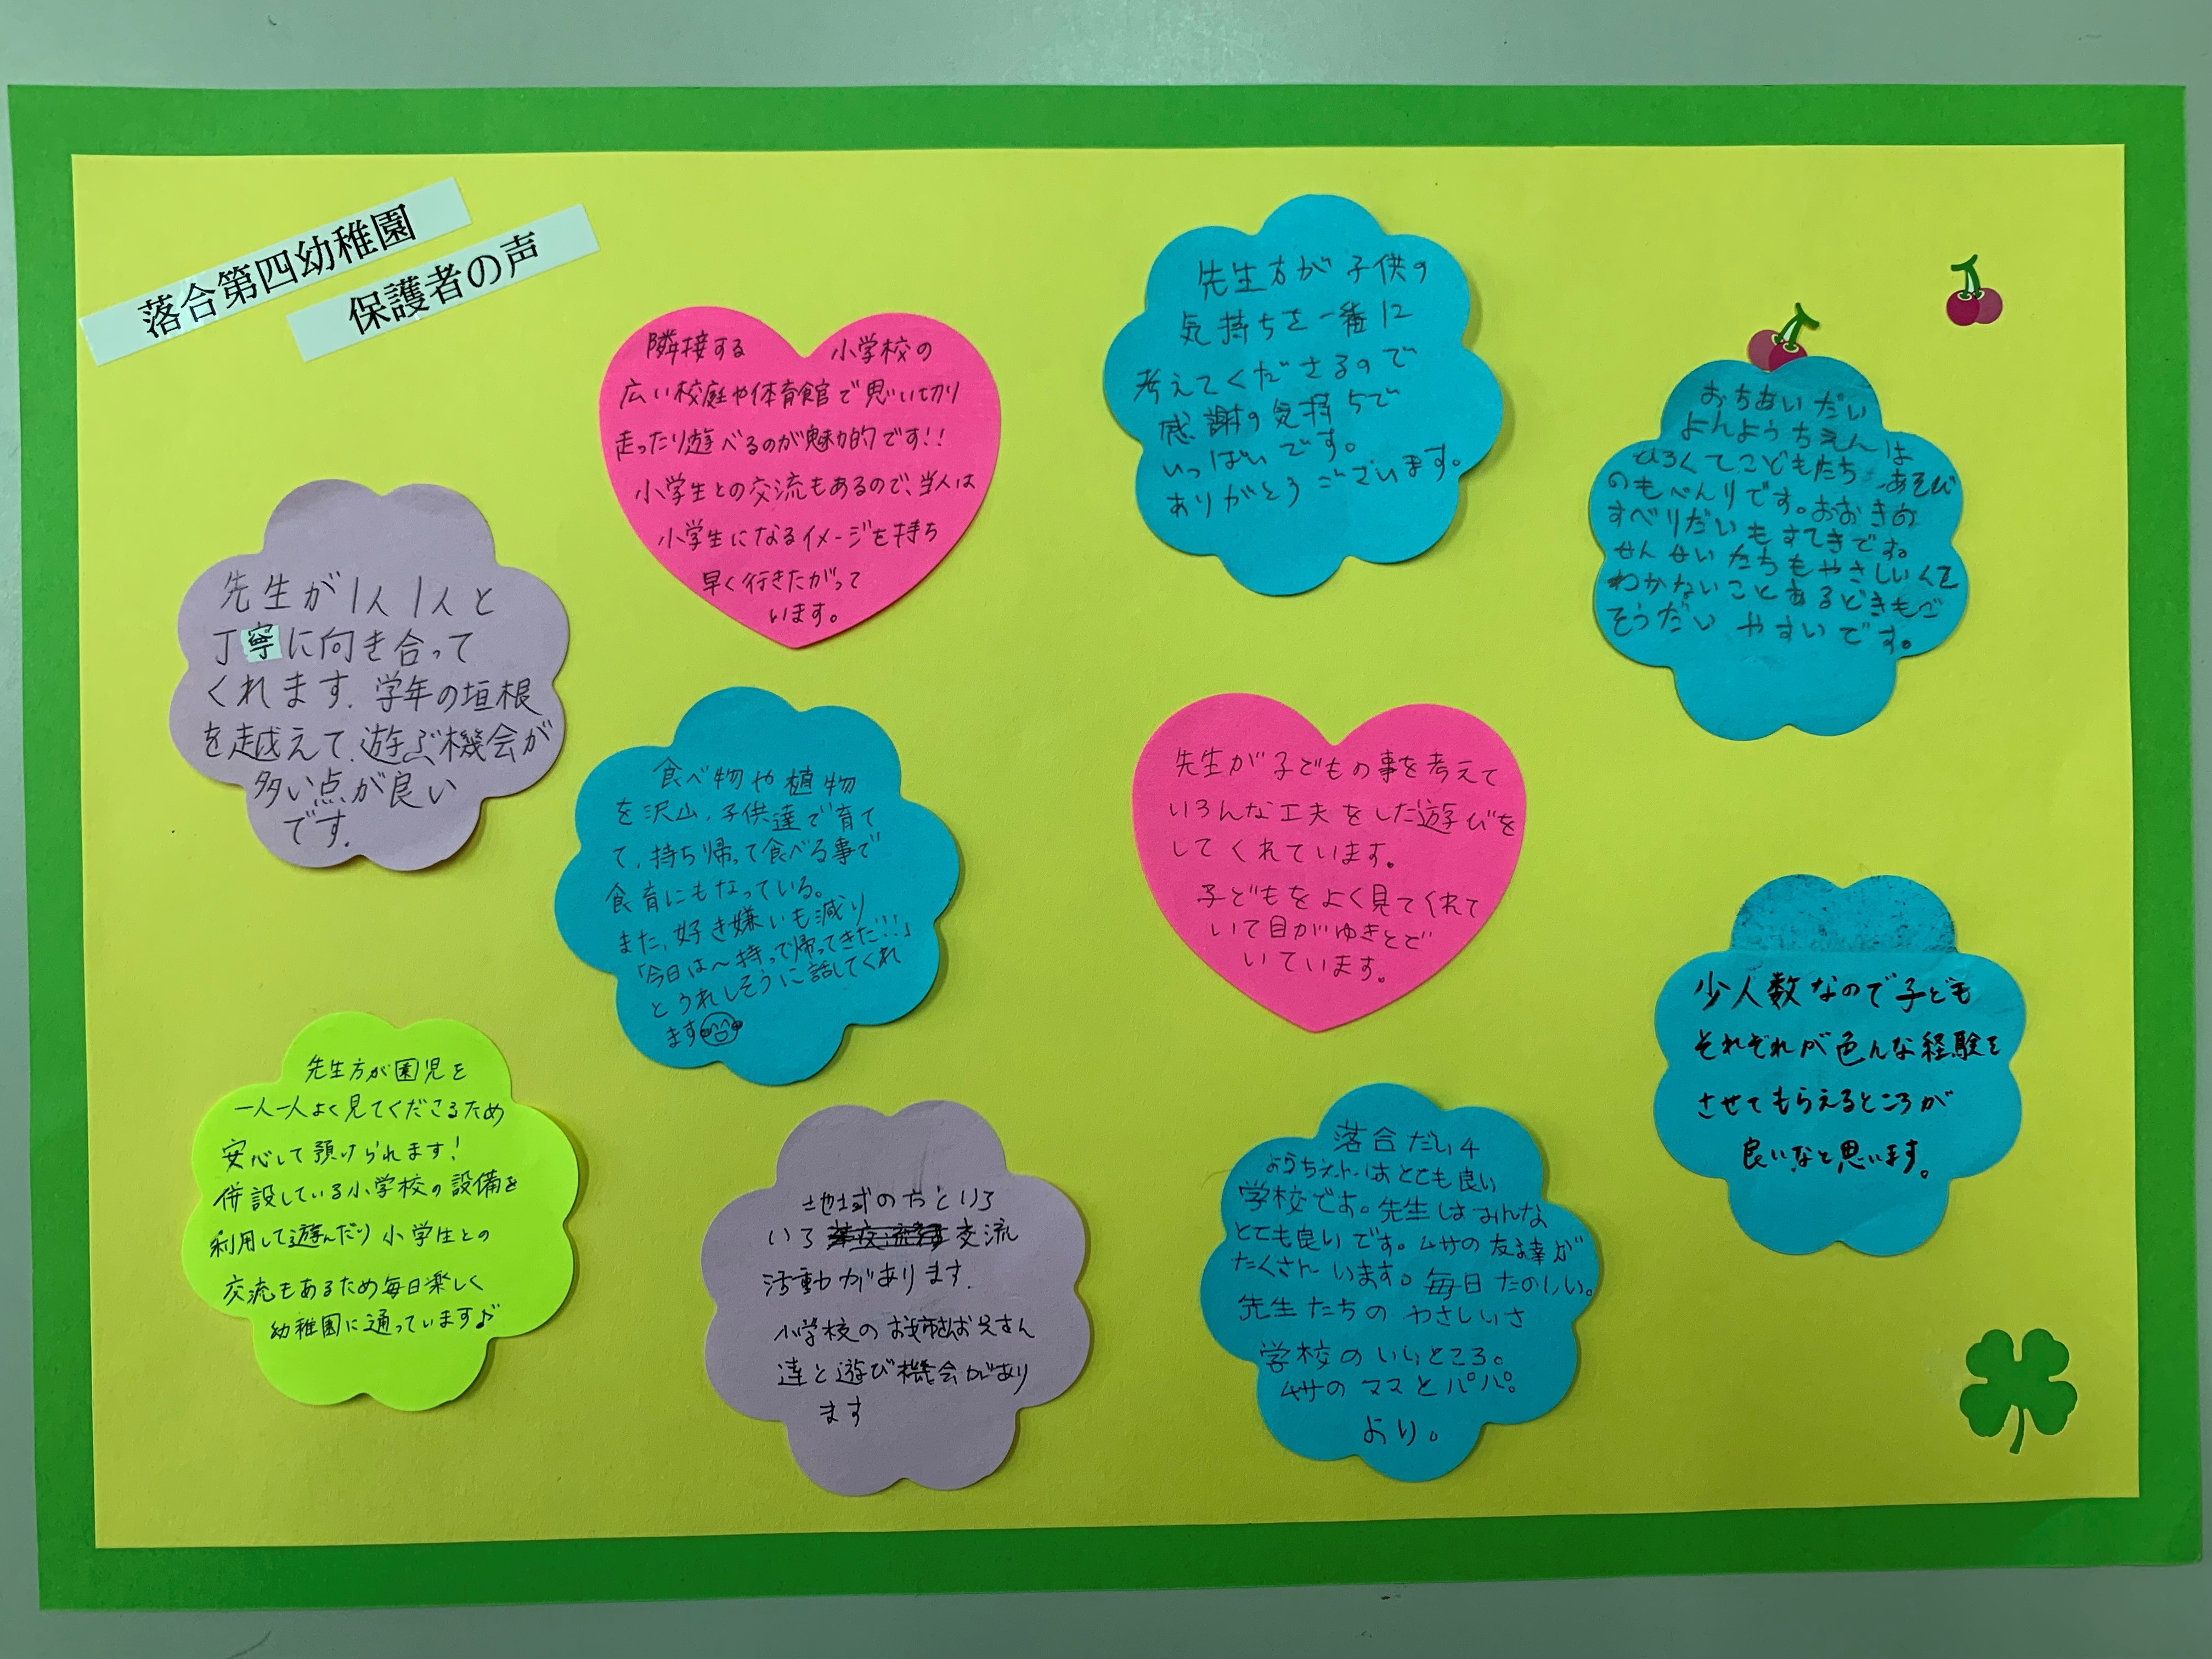 落合第四幼稚園
保護者の声
隣接する 小学校の
広い校庭や体育館で思い切り
走ったり遊べるのが魅力的です!!
小学生との交流もあるので、当人は
小学生になるイメージを持ち
早く行きたがって
います。
先生方が子供の
気持ちを一番に
考えてくださるので
感謝の気持ちで
いっぱいです。
ありがとうございます。
おちあいだい
よんようちえんは
ひろくてこどもたち あそび
のもべんりです。おおきお
すべりだいもすてきです。
せんせいたちもやさしいくて
わかないことあるどきもご
そうだい やすいです。
先生が1人1人と
丁寧に向き合って
くれます。学年の垣根
を越えて、遊ぶ機会が
多い点が良い
です。
食べ物や植物
を沢山、子供達で育て
て、持ち帰って食べる事で
食育にもなっている。
また、好き嫌いも減り
「今日は〜持って帰ってきた!!!」
とうれしそうに話してくれ
ます
先生が子どもの事を考えて
いろんな工夫をした遊びを
してくれています。
子どもをよく見てくれて
いて目がゆきとど
いています。
少人数なので子ども
それぞれが色んな経験を
させてもらえるところが
良いなと思います。
先生方が園児を
一人一人よく見てくださるため
安心して預けられます!
併設している小学校の設備を
利用して遊んだり小学生との
交流もあるため毎日楽しく
幼稚園に通っています♪
地域の方といろ
いろ 交流
活動があります。
小学校のお姉さんお兄さん
達と遊び機会があり
ます
落合だい4
ようちえんはとても良い
学校です。先生はみんな
とても良いです。ムサの友達が
たくさんいます。毎日たのしい。
先生たちのやさしいさ
学校のいいところ。
ムサのママとパパ。
より。